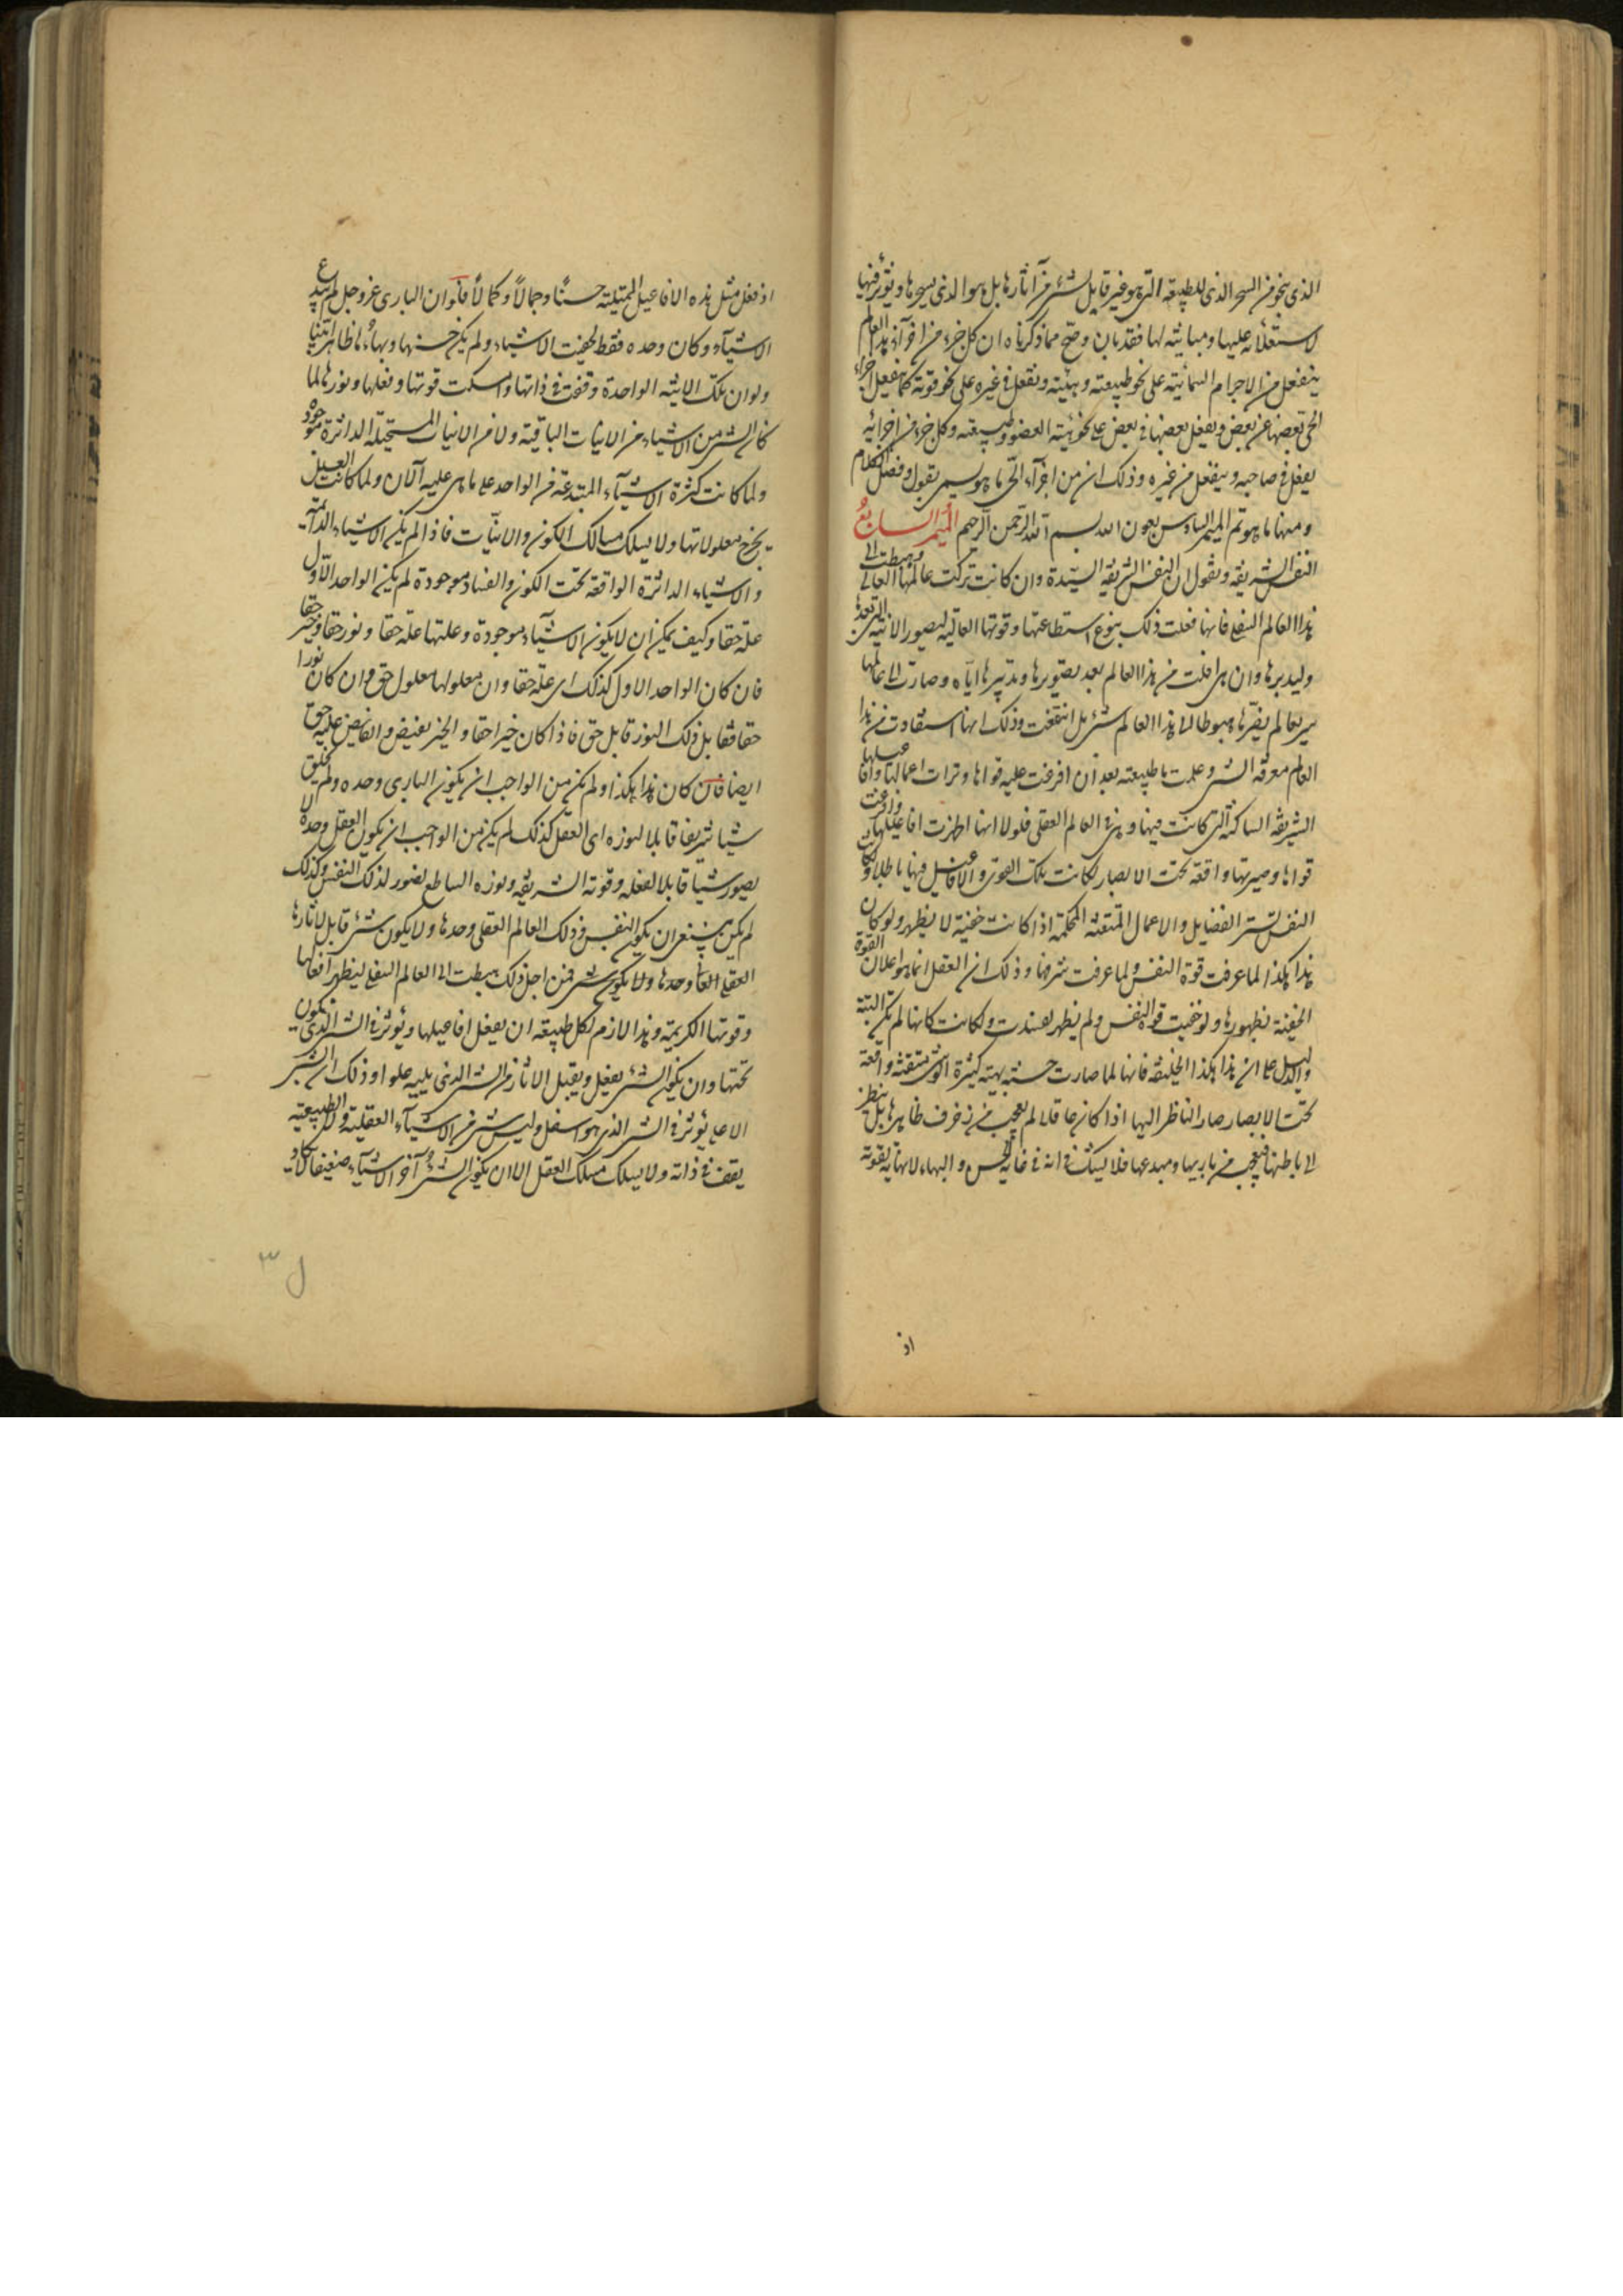 الذى ينجو من السحر الذى للطبيعة التى هو غير قابل لشئ من آثارها بل هو الذى يسحرها ويؤثر فيها
لاستعلائه عليها ومباينته لها فقد بان وصح مما ذكرناه ان كل جزء من اجزاء هذا العالم
ينفعل من الاجرام السمائية على نحو طبيعته وهيئته ويفعل فى غيره على نحو قوته كما ينفعل اجزاء
الحى بعضها عن بعض ويفعل بعضها فى بعض على نحو هيئة العضو وطبيعته وكل جزء من اجزائه
يفعل فى صاحبه وينفعل من غيره وذلك ان من اجزاء الحى ما هو يسمى بقول وفصل الكلام
ومنها ما هو تم الميمر السادس بعون الله بسم الله الرحمن الرحيم الميمر السابع
النفس الشريفة ونقول ان النفس الشريفة السيدة وان كانت تركت عالمها العالى وهبطت الى
هذا العالم السفلى فانها فعلت ذلك بنوع استطاعتها وقوتها العالية ليصور الانية التى بعدها
وليدبرها وان هى افلت من هذا العالم بعد تصويرها وتدبيرها اياه وصارت الى عالمها
سريعا لم يضرها هبوطها الى هذا العالم شئ بل انتفعت وذلك انها استفادت من هذا
العالم معرفة الشئ وعلمت ما طبيعته بعد ان افرغت عليه قواها وترات اعمالها وافاعيلها
الشريفة الساكنة التى كانت فيها وهى فى العالم العقلى فلولا انها اظهرت افاعيلها وافرغت
قواها وصيرتها واقعة تحت الابصار لكانت تلك القوى والافاعيل فيها باطلا ولكانت
النفس تستر الفضايل والاعمال المتقنة المحكمة اذا كانت خفية لا يظهر ولو كان
هذا هكذا لما عرفت قوة النفس ولما عرفت شرفها وذلك ان العقل انما هو اعلان القوة
الخفية بظهورها ولو خفيت قوة النفس ولم يظهر لفسدت ولكانت كانها لم تكن البتة
والدليل على ان هذا هكذا الخليقة فانها لما صارت حسنة بهية كثيرة الوشى متقنة واقعة
تحت الابصار صار الناظر اليها اذا كان عاقلا لم يعجب من زخرف ظاهرها بل ينظر
الى باطنها فيعجب من باريها ومبدعها فلا يشك فى انه فى غاية الحسن والبهاء لا نهاية لقوته
اذ
اذ فعل مثل هذه الافاعيل الممتلئة حسنا وجمالا وكمالا فلو ان البارى عز وجل لم يبدع
الاشياء وكان وحده فقط لخفيت الاشياء ولم يكن حسنها وبهاؤها ظاهرا بينا
ولو ان تلك الانية الواحدة وقفت فى ذاتها وامسكت قوتها وفعلها ونورها لما
كان شئ من الاشياء من الانيات الباقية ولا من الانيات المستحيلة الداثرة موجود
ولما كانت كثرة الاشياء المبتدعة من الواحد على ما هى عليه الآن ولما كانت العلل
يخرج معلولاتها ولا يسلك مسالك الكون والانيات فاذا لم يكن الاشياء الدائمة
والاشياء الداثرة الواقعة تحت الكون والفساد موجودة لم يكن الواحد الاول
علة حقا وكيف يمكن ان لا يكون الاشياء موجودة وعلتها علة حقا ونور حقا وخير حقا
فان كان الواحد الاول كذلك اى علة حقا وان معلولها معلول حق وان كان نورا
حقا فقابل ذلك النور قابل حق فاذا كان خيرا حقا والخير يفيض والفايض عليه حق
ايضا فان كان هذا هكذا ولم يكن من الواجب ان يكون البارى وحده ولم يخلق
شيا شريفا قابلا لنوره اى العقل كذلك لم يكن من الواجب ان يكون العقل وحده لا
يصور شيا قابلا لفعله وقوته الشريفة ونوره الساطع فصور لذلك النفس وكذلك
لم يكن ينبغى ان يكون النفس فى ذلك العالم العقلى وحدها ولا يكون شئ قابل لاثارها
العقلى العالى وحدها ولا يكون شئ فمن اجل ذلك هبطت الى العالم السفلى ليظهر افعالها
وقوتها الكريمة وهذا لازم لكل طبيعة ان يفعل افاعيلها ويؤثر فى الشئ الذى يكون
تحتها وان يكون الشئ يفعل ويقبل الاثار من الشئ الذى يليه علوا وذلك ان الشئ
الاعلى يؤثر فى الشئ الذى هو اسفل وليس شئ من الاشياء العقلية والطبيعية
يقف فى ذاته ولا يسلك مسلك العقل الا ان يكون الشئ آخر الاشياء ضعيفا لا يكاد